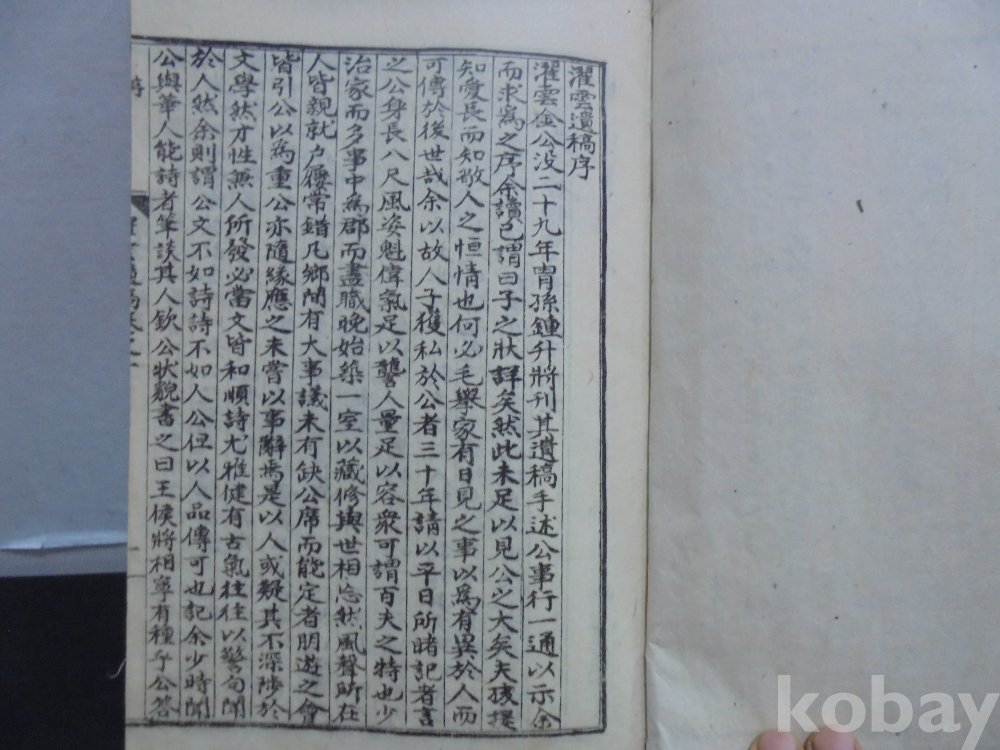 濯雲遺稿序
濯雲金公没二十九年冑孫鍾升將刊其遺稿手述公事行一通以示余
而求為之序余讀已謂曰子之狀詳矣然此未足以見公之大矣夫孩提
知愛長而知敬人之恒情也何必毛擧家有日見之事以為有異於人而
可傳於後世哉余以故人子獲私於公者三十年請以平日所睹記者言
之公身長八尺風姿魁偉氣足以讋人量足以容衆可謂百夫之特也少
治家而多事中為郡而盡職晚始築一室以藏修與世相忘然風聲所在
人皆親就戶屨常錯凡鄉閭有大事議未有缺公席而能定者朋遊之會
皆引公以為重公亦隨緣應之未嘗以事辭焉是以人或疑其不深陟於
文學然才性無人所發必當文皆和順詩尤雅健有古氣往往以警句聞
於人然余則謂公文不如詩詩不如人公但以人品傳可也記余少時聞
公與華人能詩者筆談其人欽公狀貌書之曰王侯將相寧有種乎公答
序
一
kobay